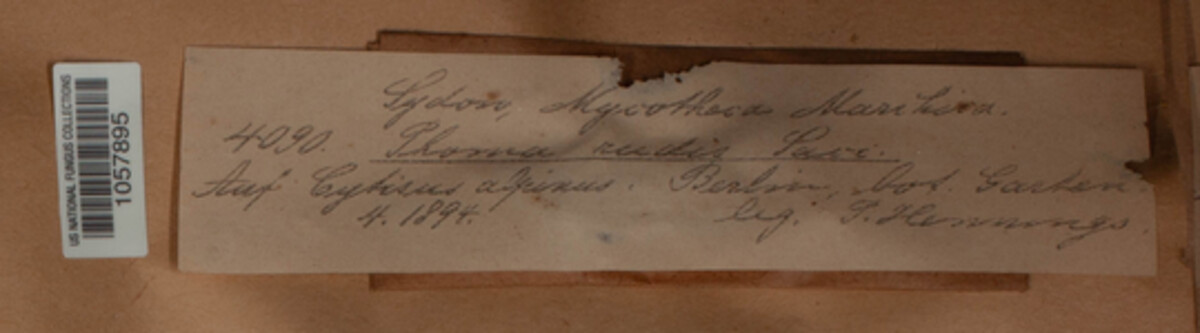 US NATIONAL FUNGUS COLLECTIONS
1057895
Sydow, Mycotheca Marchica.
4090. Phoma rudis Sacc.
Auf Cytisus alpinus. Berlin, bot. Garten.
4. 1894. leg. P. Hennings.